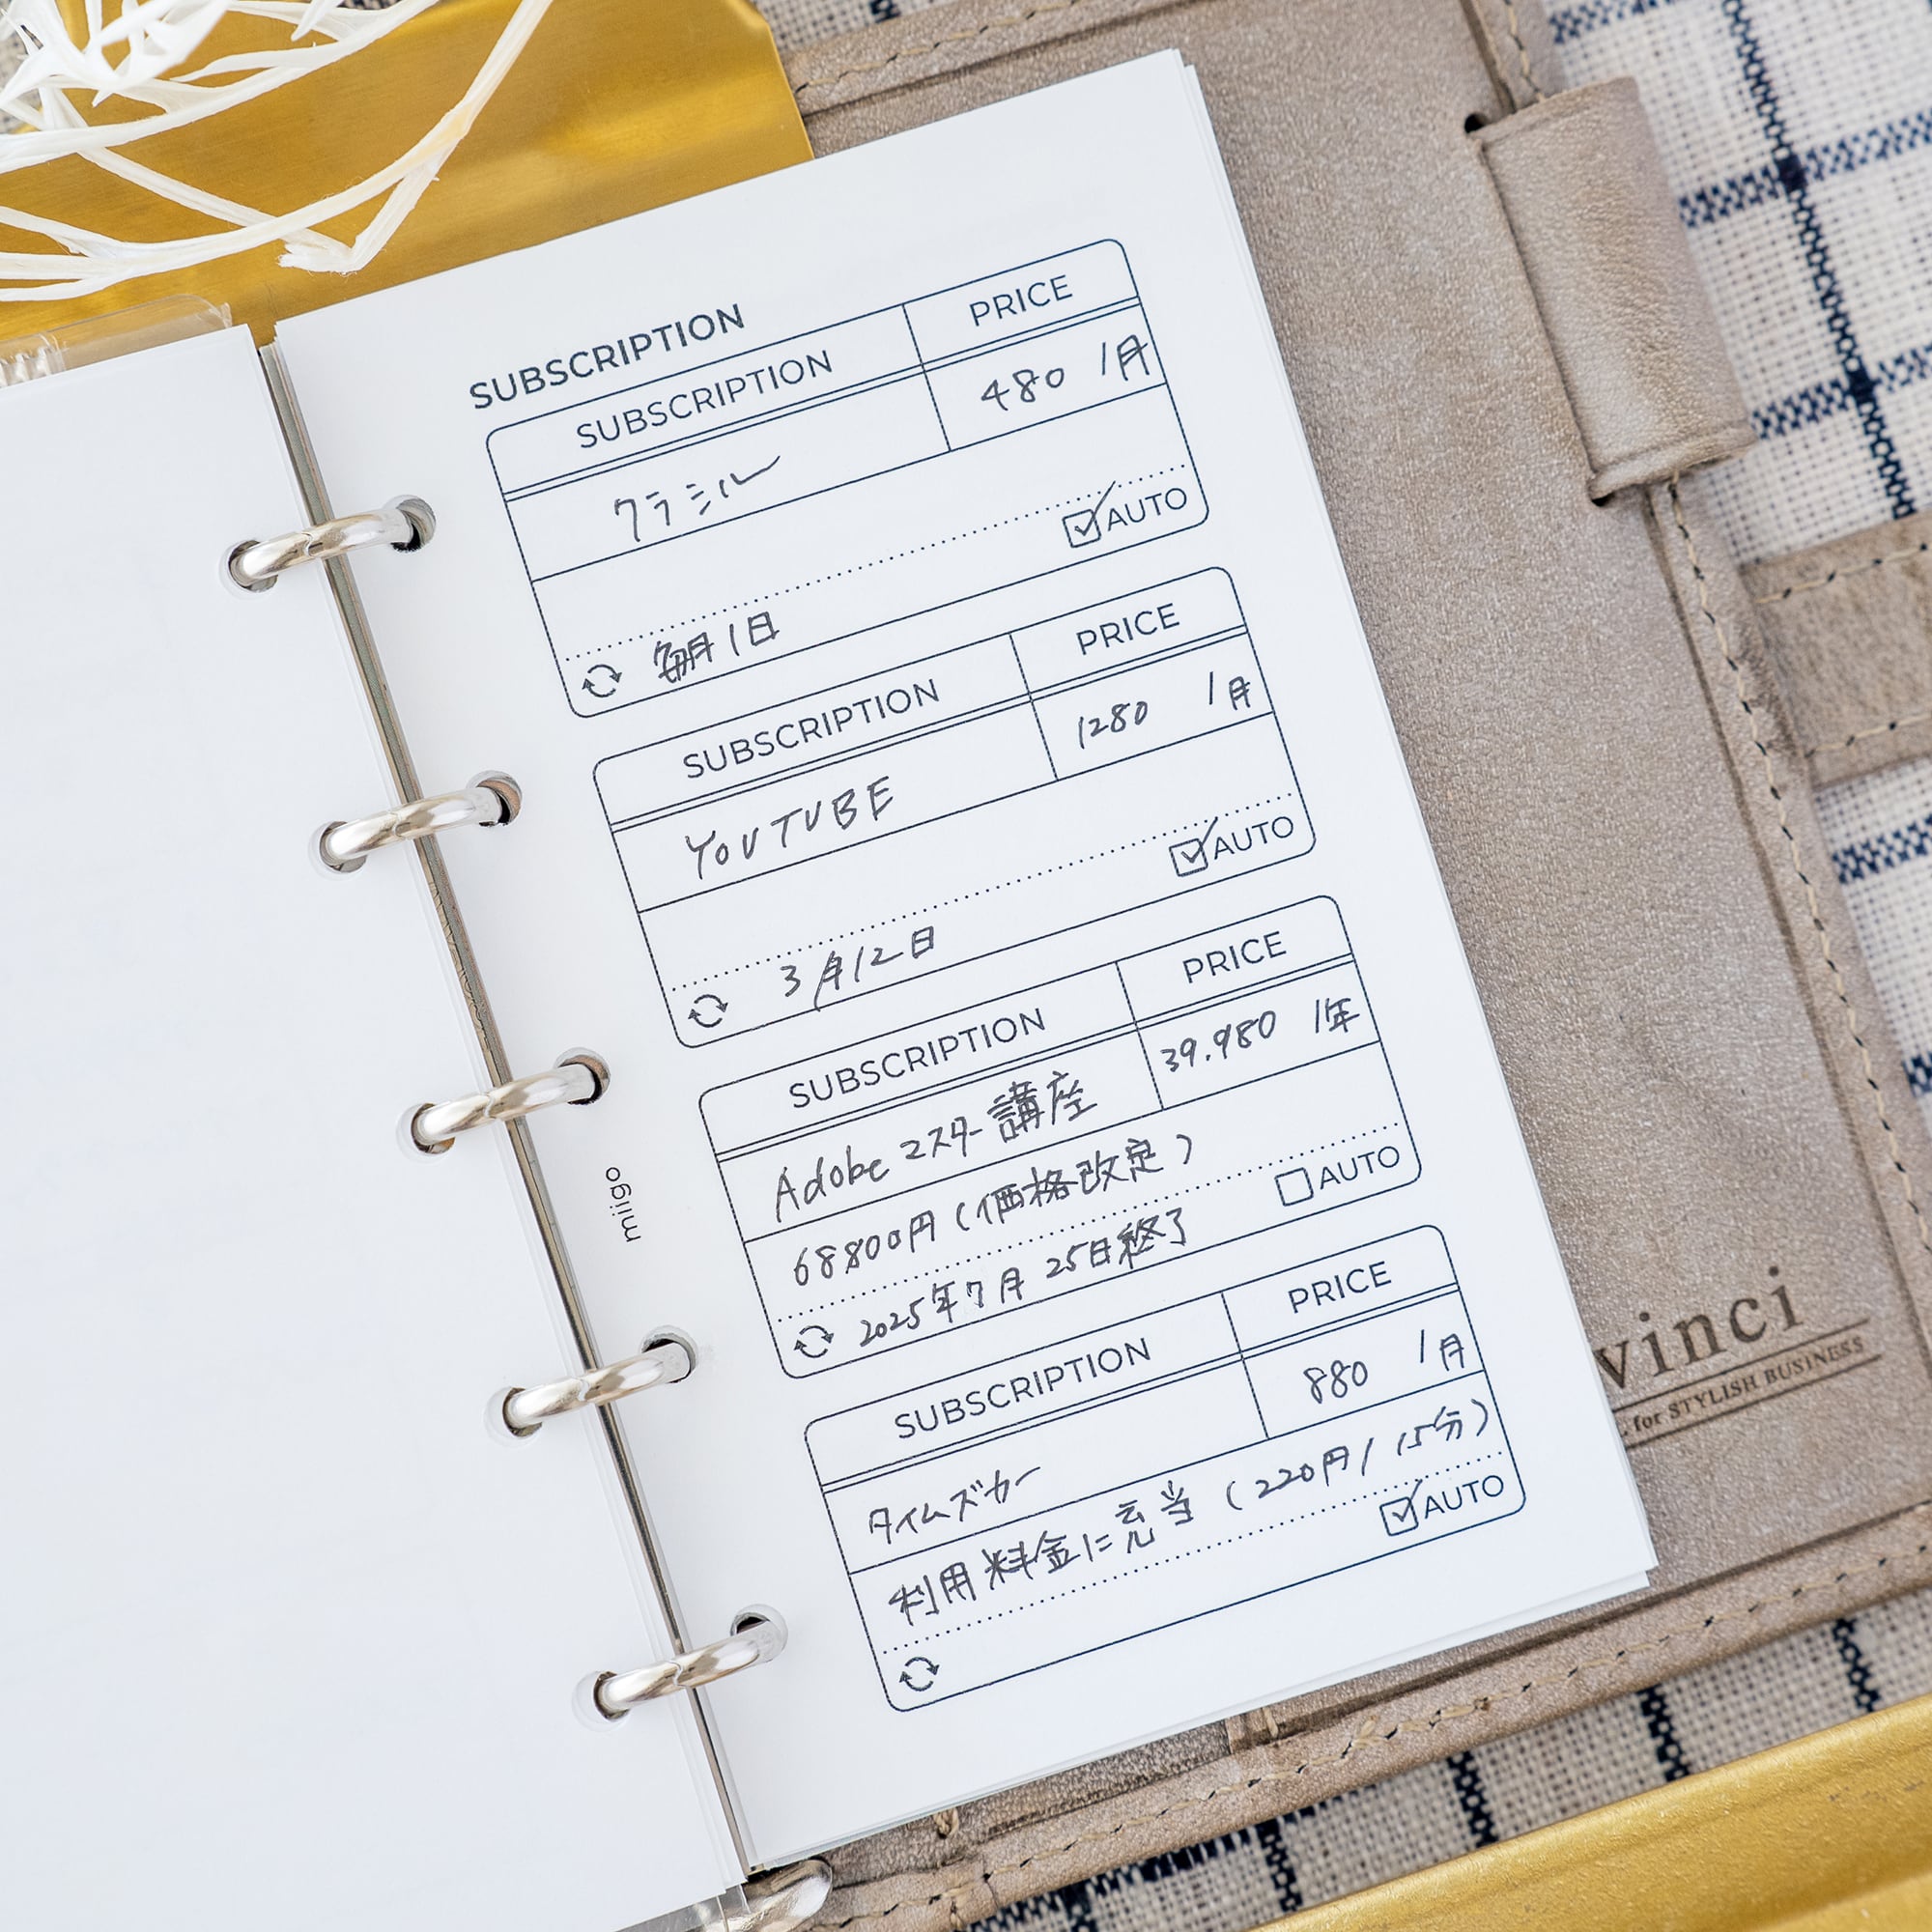 SUBSCRIPTION
SUBSCRIPTION PRICE
クラシル 480 /月
AUTO
毎月1日
SUBSCRIPTION PRICE
YOUTUBE 1280 /月
AUTO
3月12日
SUBSCRIPTION PRICE
Adobe マスター講座 39.980 /年
68800円(価格改定)
AUTO
2025年7月25日終了
SUBSCRIPTION PRICE
タイムズカー 880 /月
利用料金に充当(220円/15分)
AUTO
miigo
vinci
for STYLISH BUSINESS